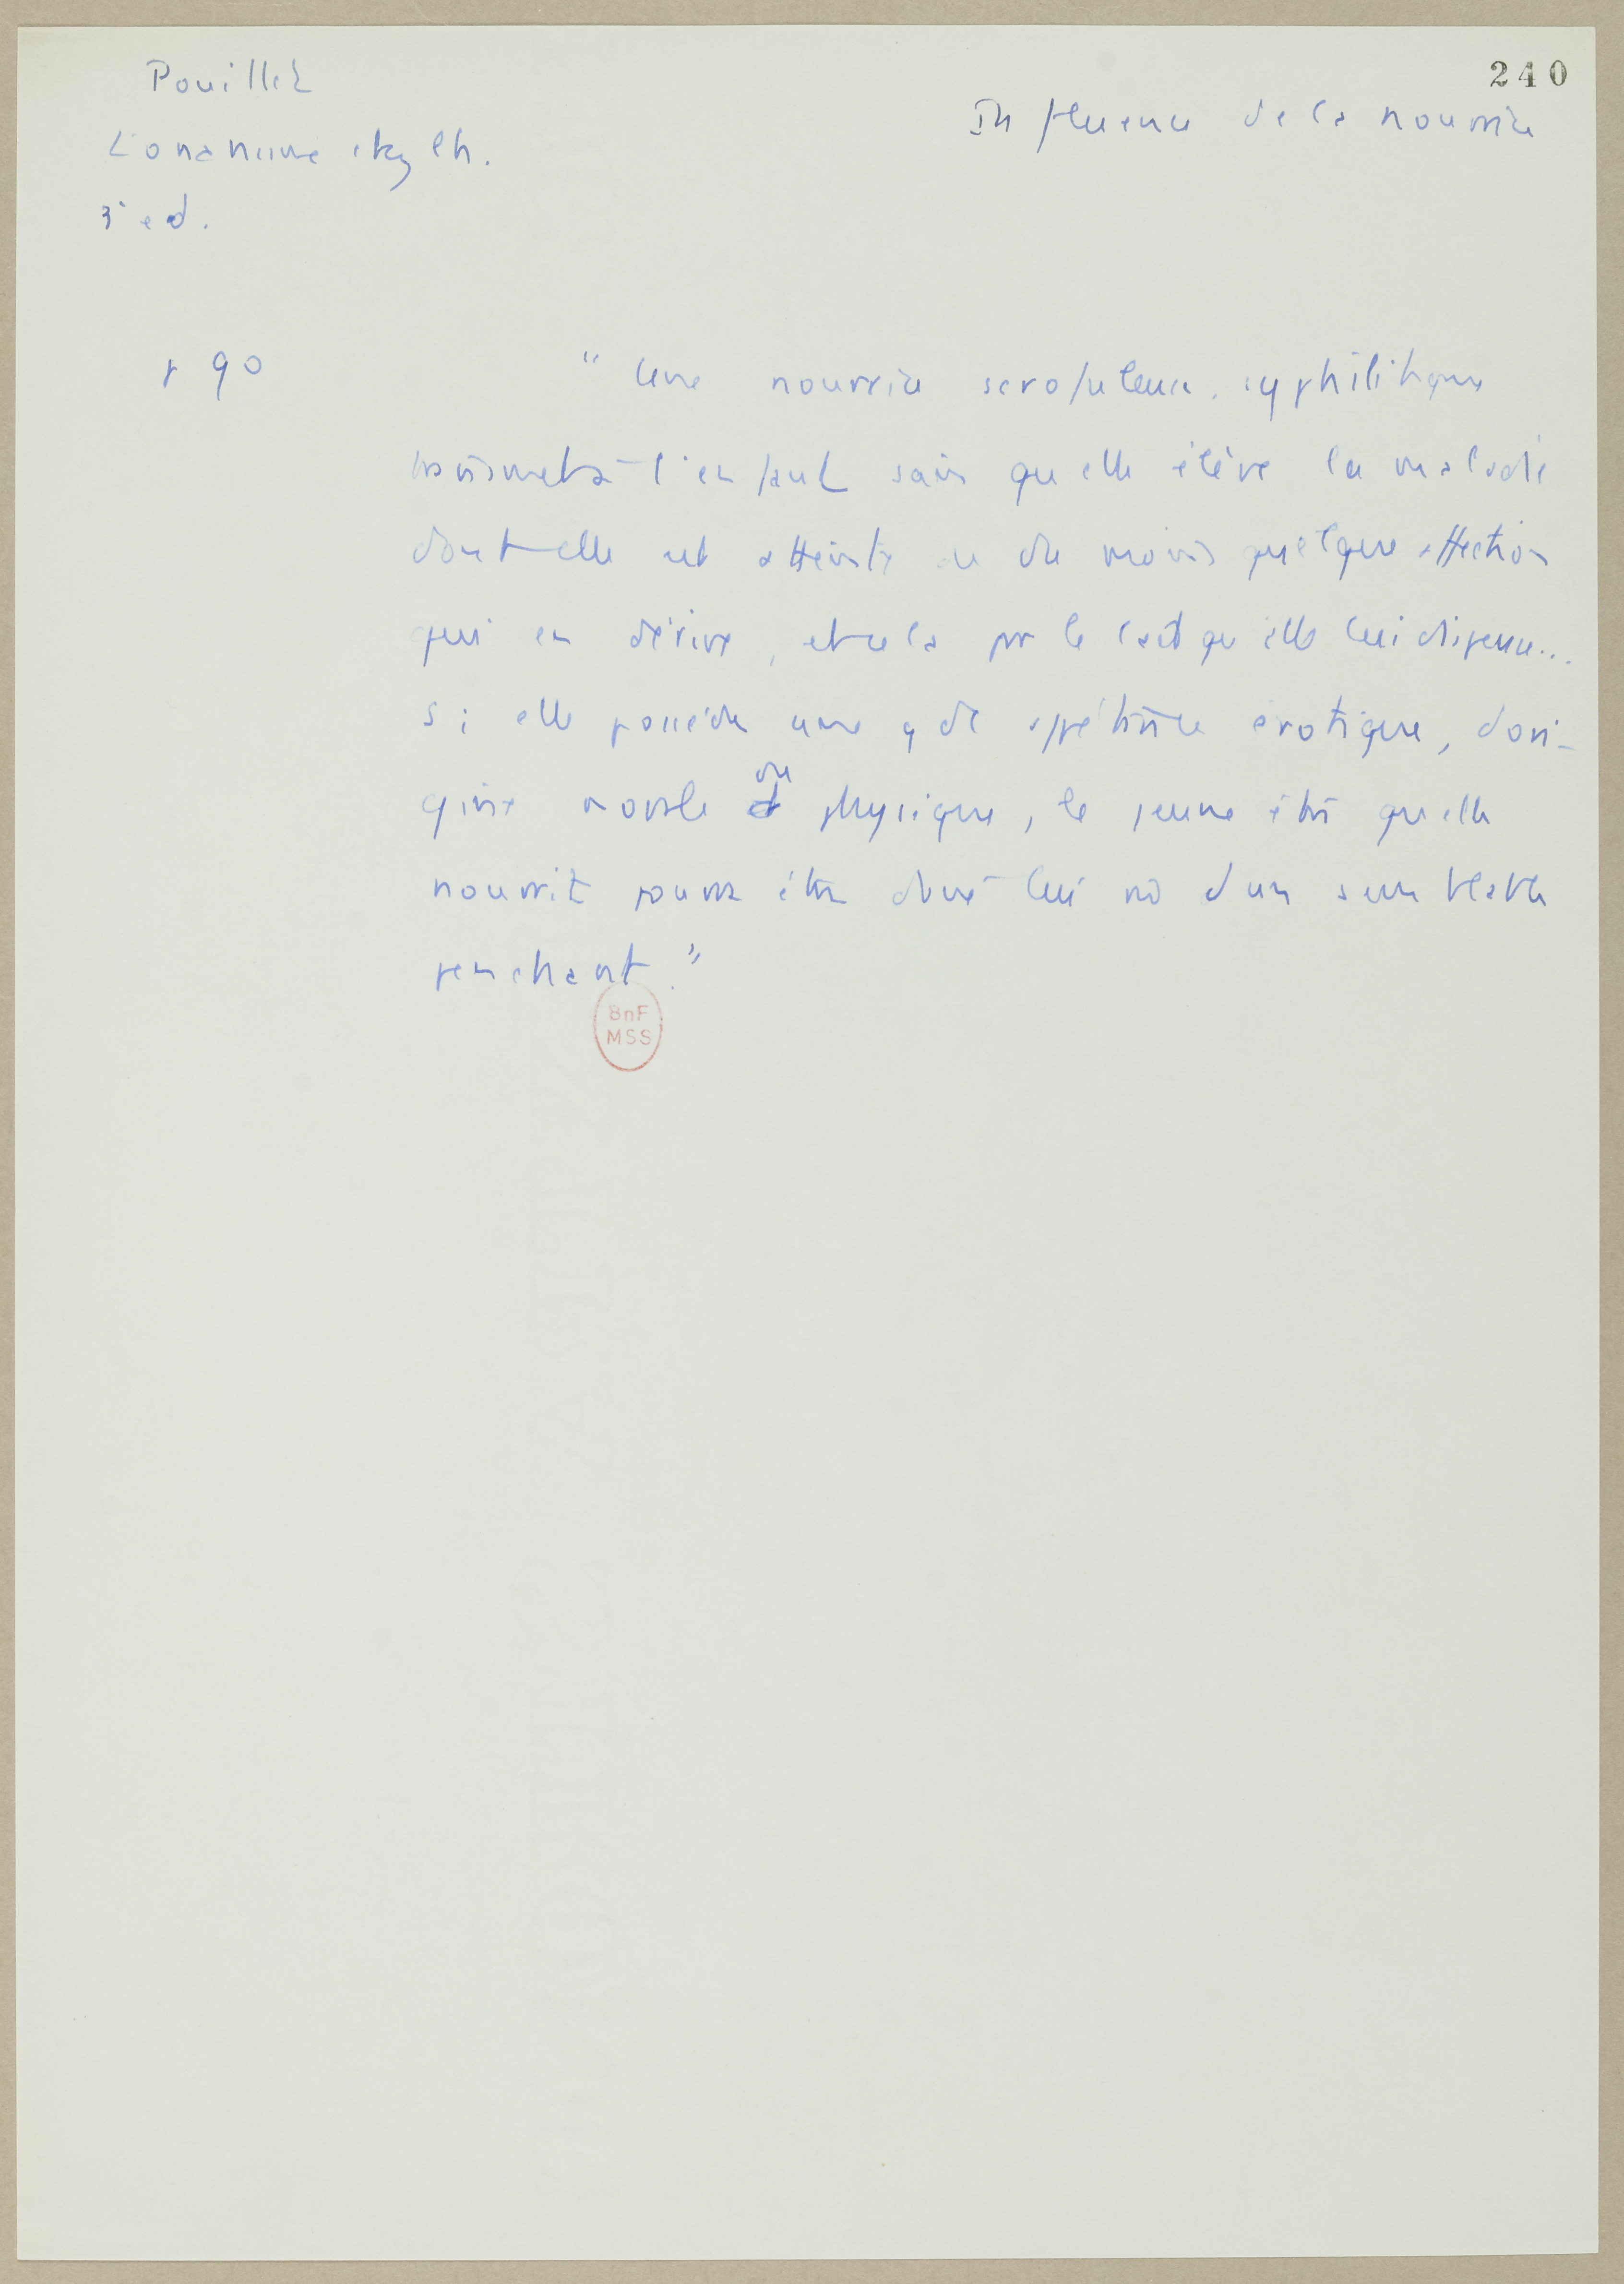 240
Pouillet
L'onanisme chez l'h.
3e ed.
Influence de la nourrice
p 90
" Une nourrice scrofuleuse, syphilitique
transmet à l'enfant sain qu'elle élève la maladie
dont elle est atteinte ou du moins quelque affection
qui en dérive, et cela par le lait qu'elle lui dispense...
Si elle possède une gde appétence érotique, d'ori-
gine morale ou physique, le jeune être qu'elle
nourrit pourra être doué lui d'un semblable
penchant."
BnF
MSS